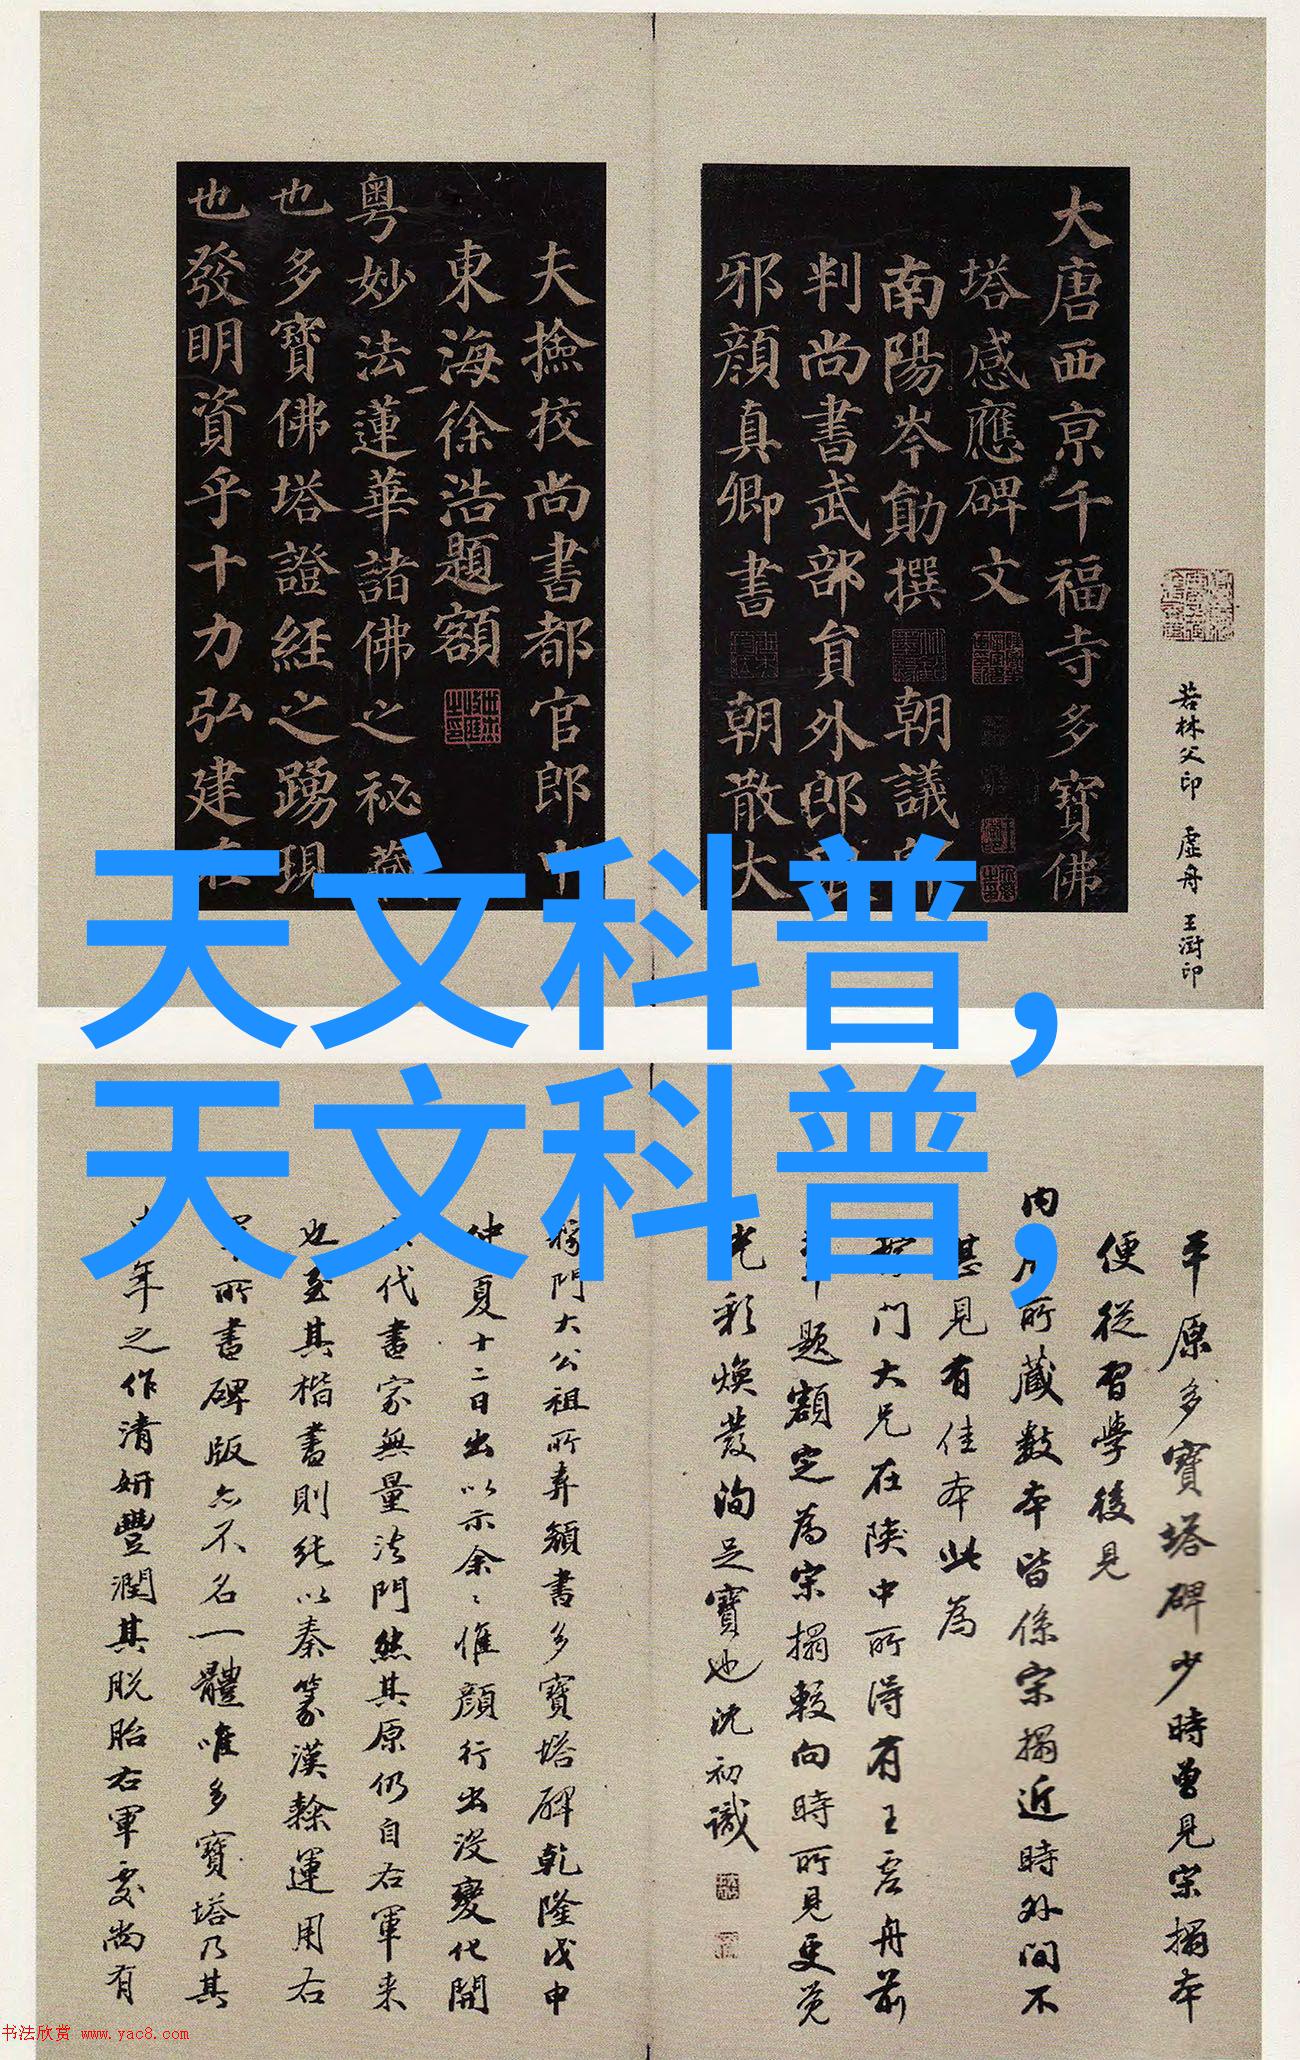 大唐西京千福寺多寶佛
塔感應碑文
南陽岑勛撰 朝議
判尚書武部員外郎
邪顏真卿書 朝散大
夫撿挍尚書都官郎中
東海徐浩題額
粵妙法蓮華諸佛之祕藏
也多寶佛塔證經之踴現
也發明資乎十力弘建在
若林父印 虛舟 王澍印
天文科普，
天文科普，
平原多寶塔碑少時曾見宋搨本
便從習學後見
內 所藏數本皆係宋搨近時外間不
甚見有佳本此為
門大兄在陝中所得有王虛舟前
題額定為宋搨較向時所見更覺
光彩煥發洵足寶也沈初識
門大公祖所弆顏書多寶塔碑乾隆戊申
仲夏十二日出以示余〻惟顏行出沒變化開
代書家無量法門然其原仍自右軍来
也至其楷書則純以秦篆漢隸運用右
軍所書碑版亦不名一體唯多寶塔乃其
年之作清妍豐潤其脫胎右軍處尚有
书法欣赏 www.yac8.com